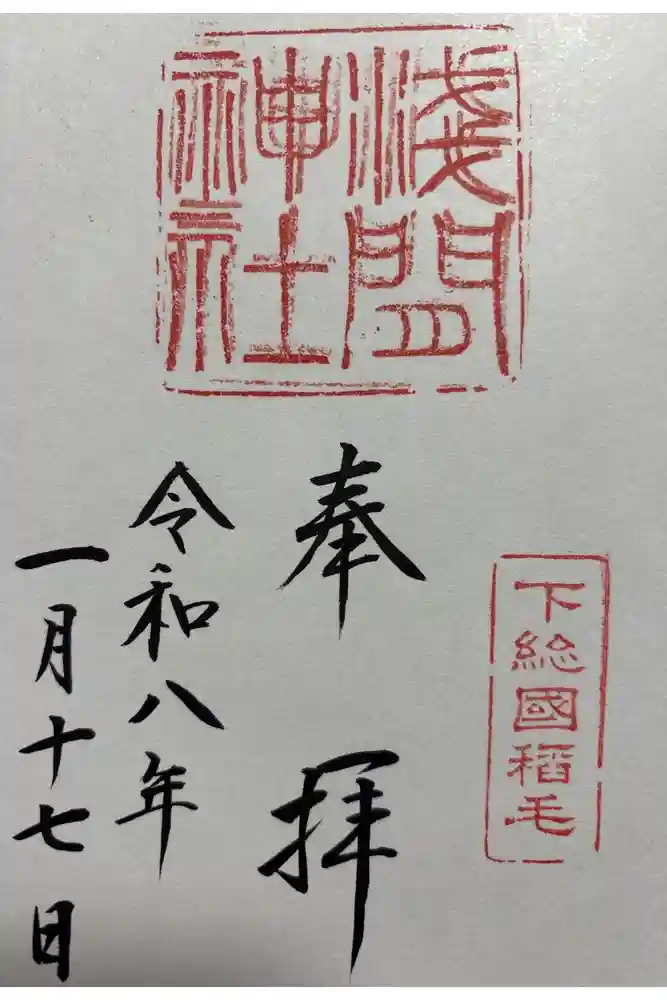 淺間
神社
下総國稻毛
奉拝
令和八年
一月十七日